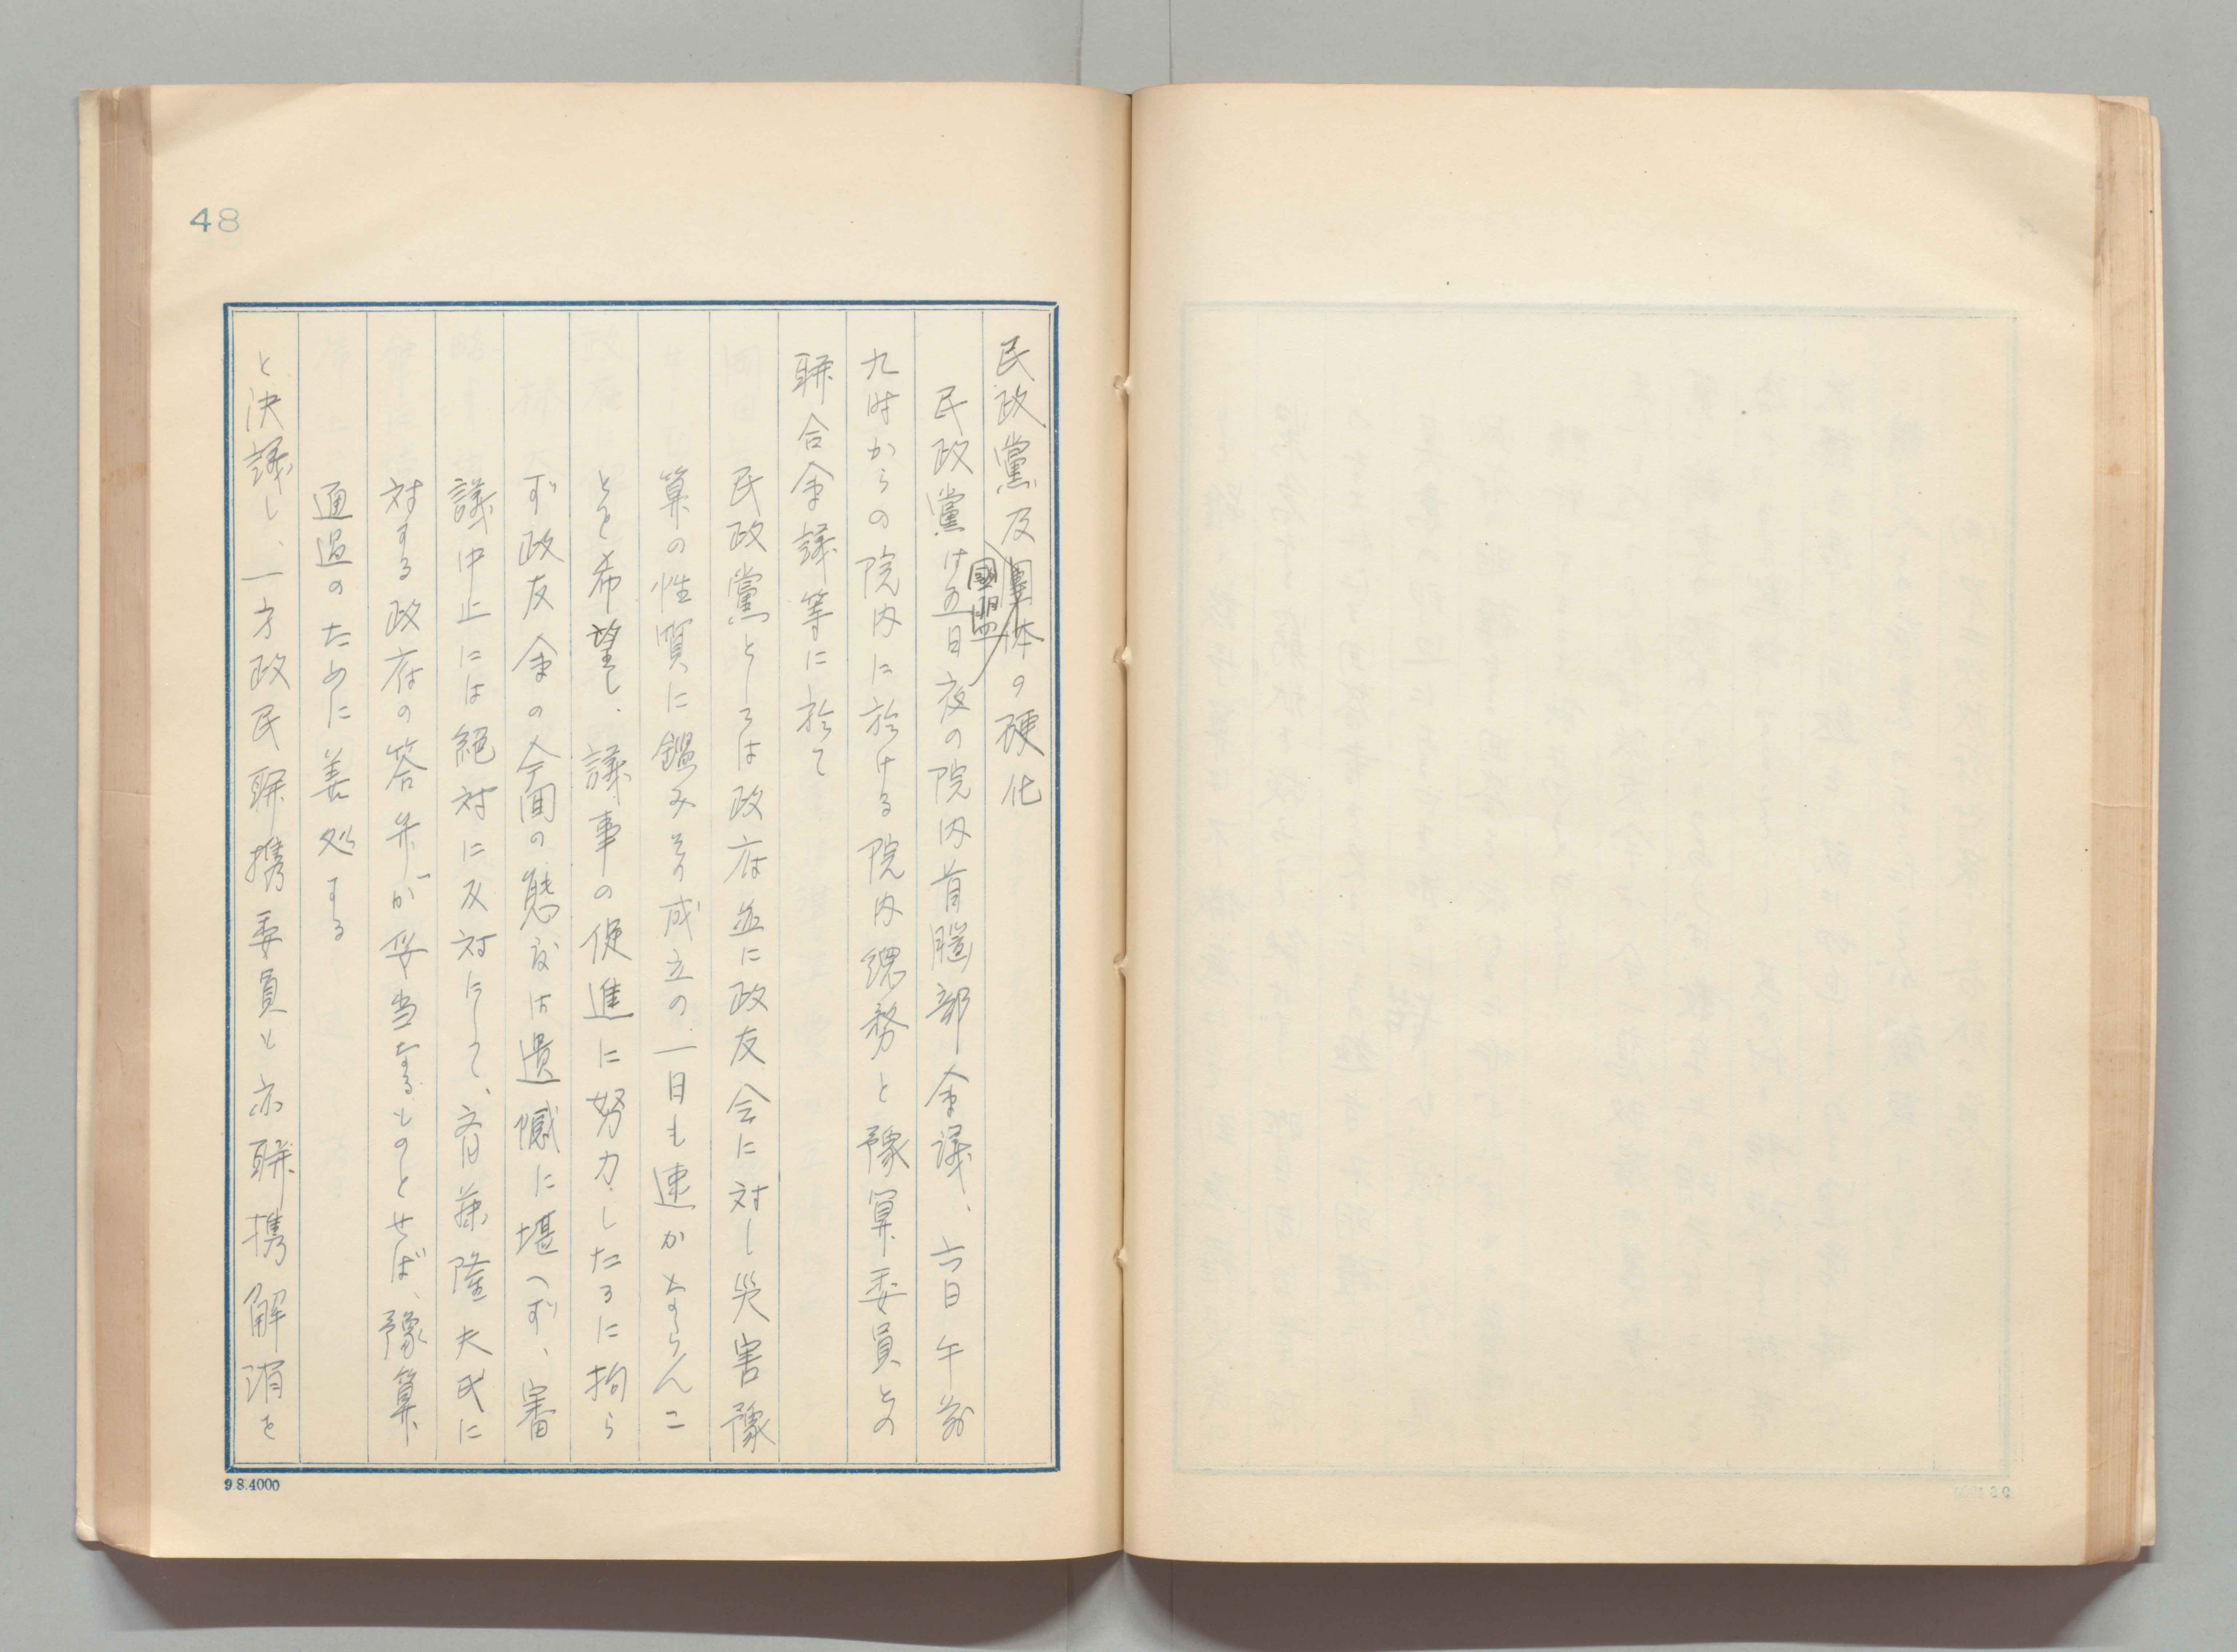 48
民政黨及國盟の硬化
民政黨は五日夜の院内首腦部会議、六日午前
九時からの院内に於ける院内總務と豫算委員との
聯合会議等に於て
民政黨としては政府並に政友会に対し災害豫
算の性質に鑑みその成立の一日も速かならんこ
とを希望し、議事の促進に努力したるに拘ら
ず政友会の今回の態度は遺憾に堪へず、審
議中止には絶対に反対にして、斉藤隆夫氏に
対する政府の答弁が妥当なるものとせば、豫算
通過のために善処する
と決議し、一方政民聯携委員も亦聯携解消を
9.8.4000